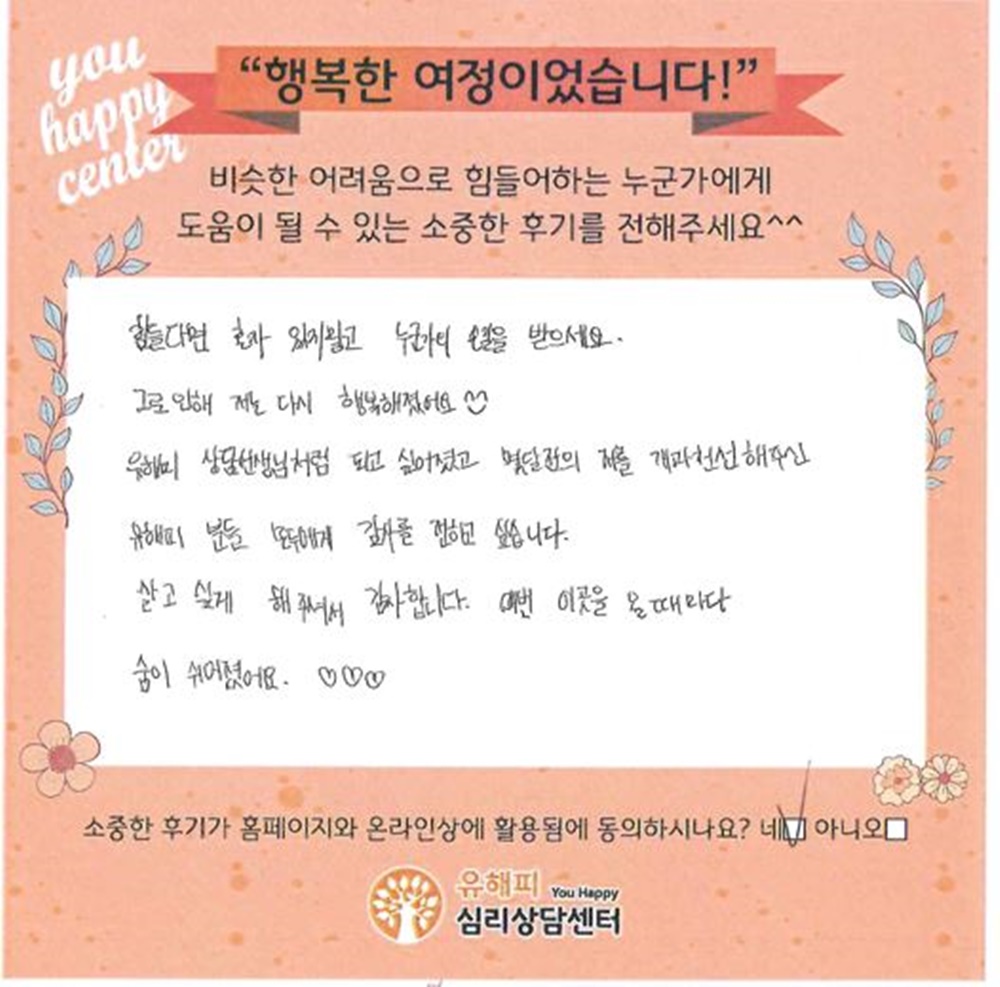 you
happy
center
“행복한 여정이었습니다!”
비슷한 어려움으로 힘들어하는 누군가에게
도움이 될 수 있는 소중한 후기를 전해주세요^^
힘들다면 혼자 있지말고 누군가의 도움을 받으세요.
그로인해 저는 다시 행복해졌어요
유해피 상담선생님처럼 되고 싶어졌고 몇달전의 저를 개과천선해주신
유해피 분들 모두에게 감사를 전하고 싶습니다.
살고 싶게 해주셔서 감사합니다. 매번 이곳을 올때마다
숨이 쉬어졌어요. ♡♡♡
소중한 후기가 홈페이지와 온라인상에 활용됨에 동의하시나요? 네☑ 아니오☐
유해피 You Happy
심리상담센터